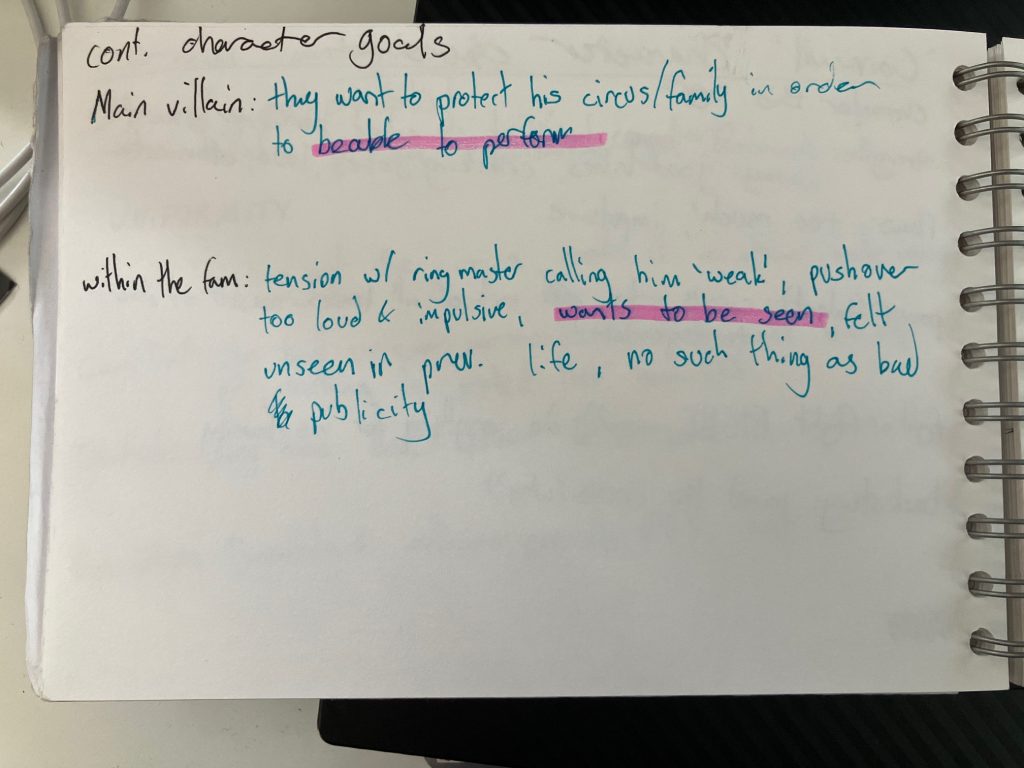 cont. character goals
Main villain: they want to protect his circus/family in order
to beable to perform
within the fam: tension w/ ring master calling him 'weak', pushover
too loud & impulsive, wants to be seen, felt
unseen in prev. life, no such thing as bad
publicity